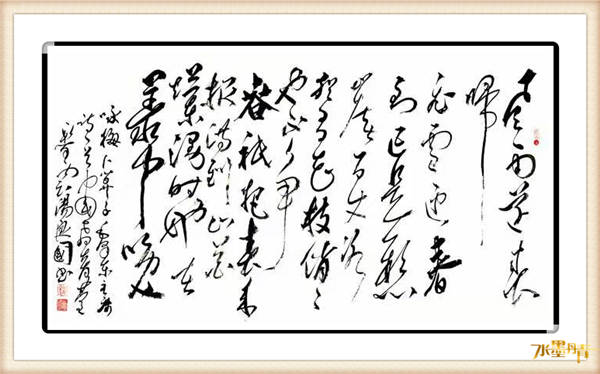 风雨送春
归
飞雪迎春
到已是悬
崖百丈冰
犹有花枝俏〻
也不争
春祇把春来
报待到山花
烂漫时她在
丛中笑
咏梅卜算子毛泽东主席
水墨丹青